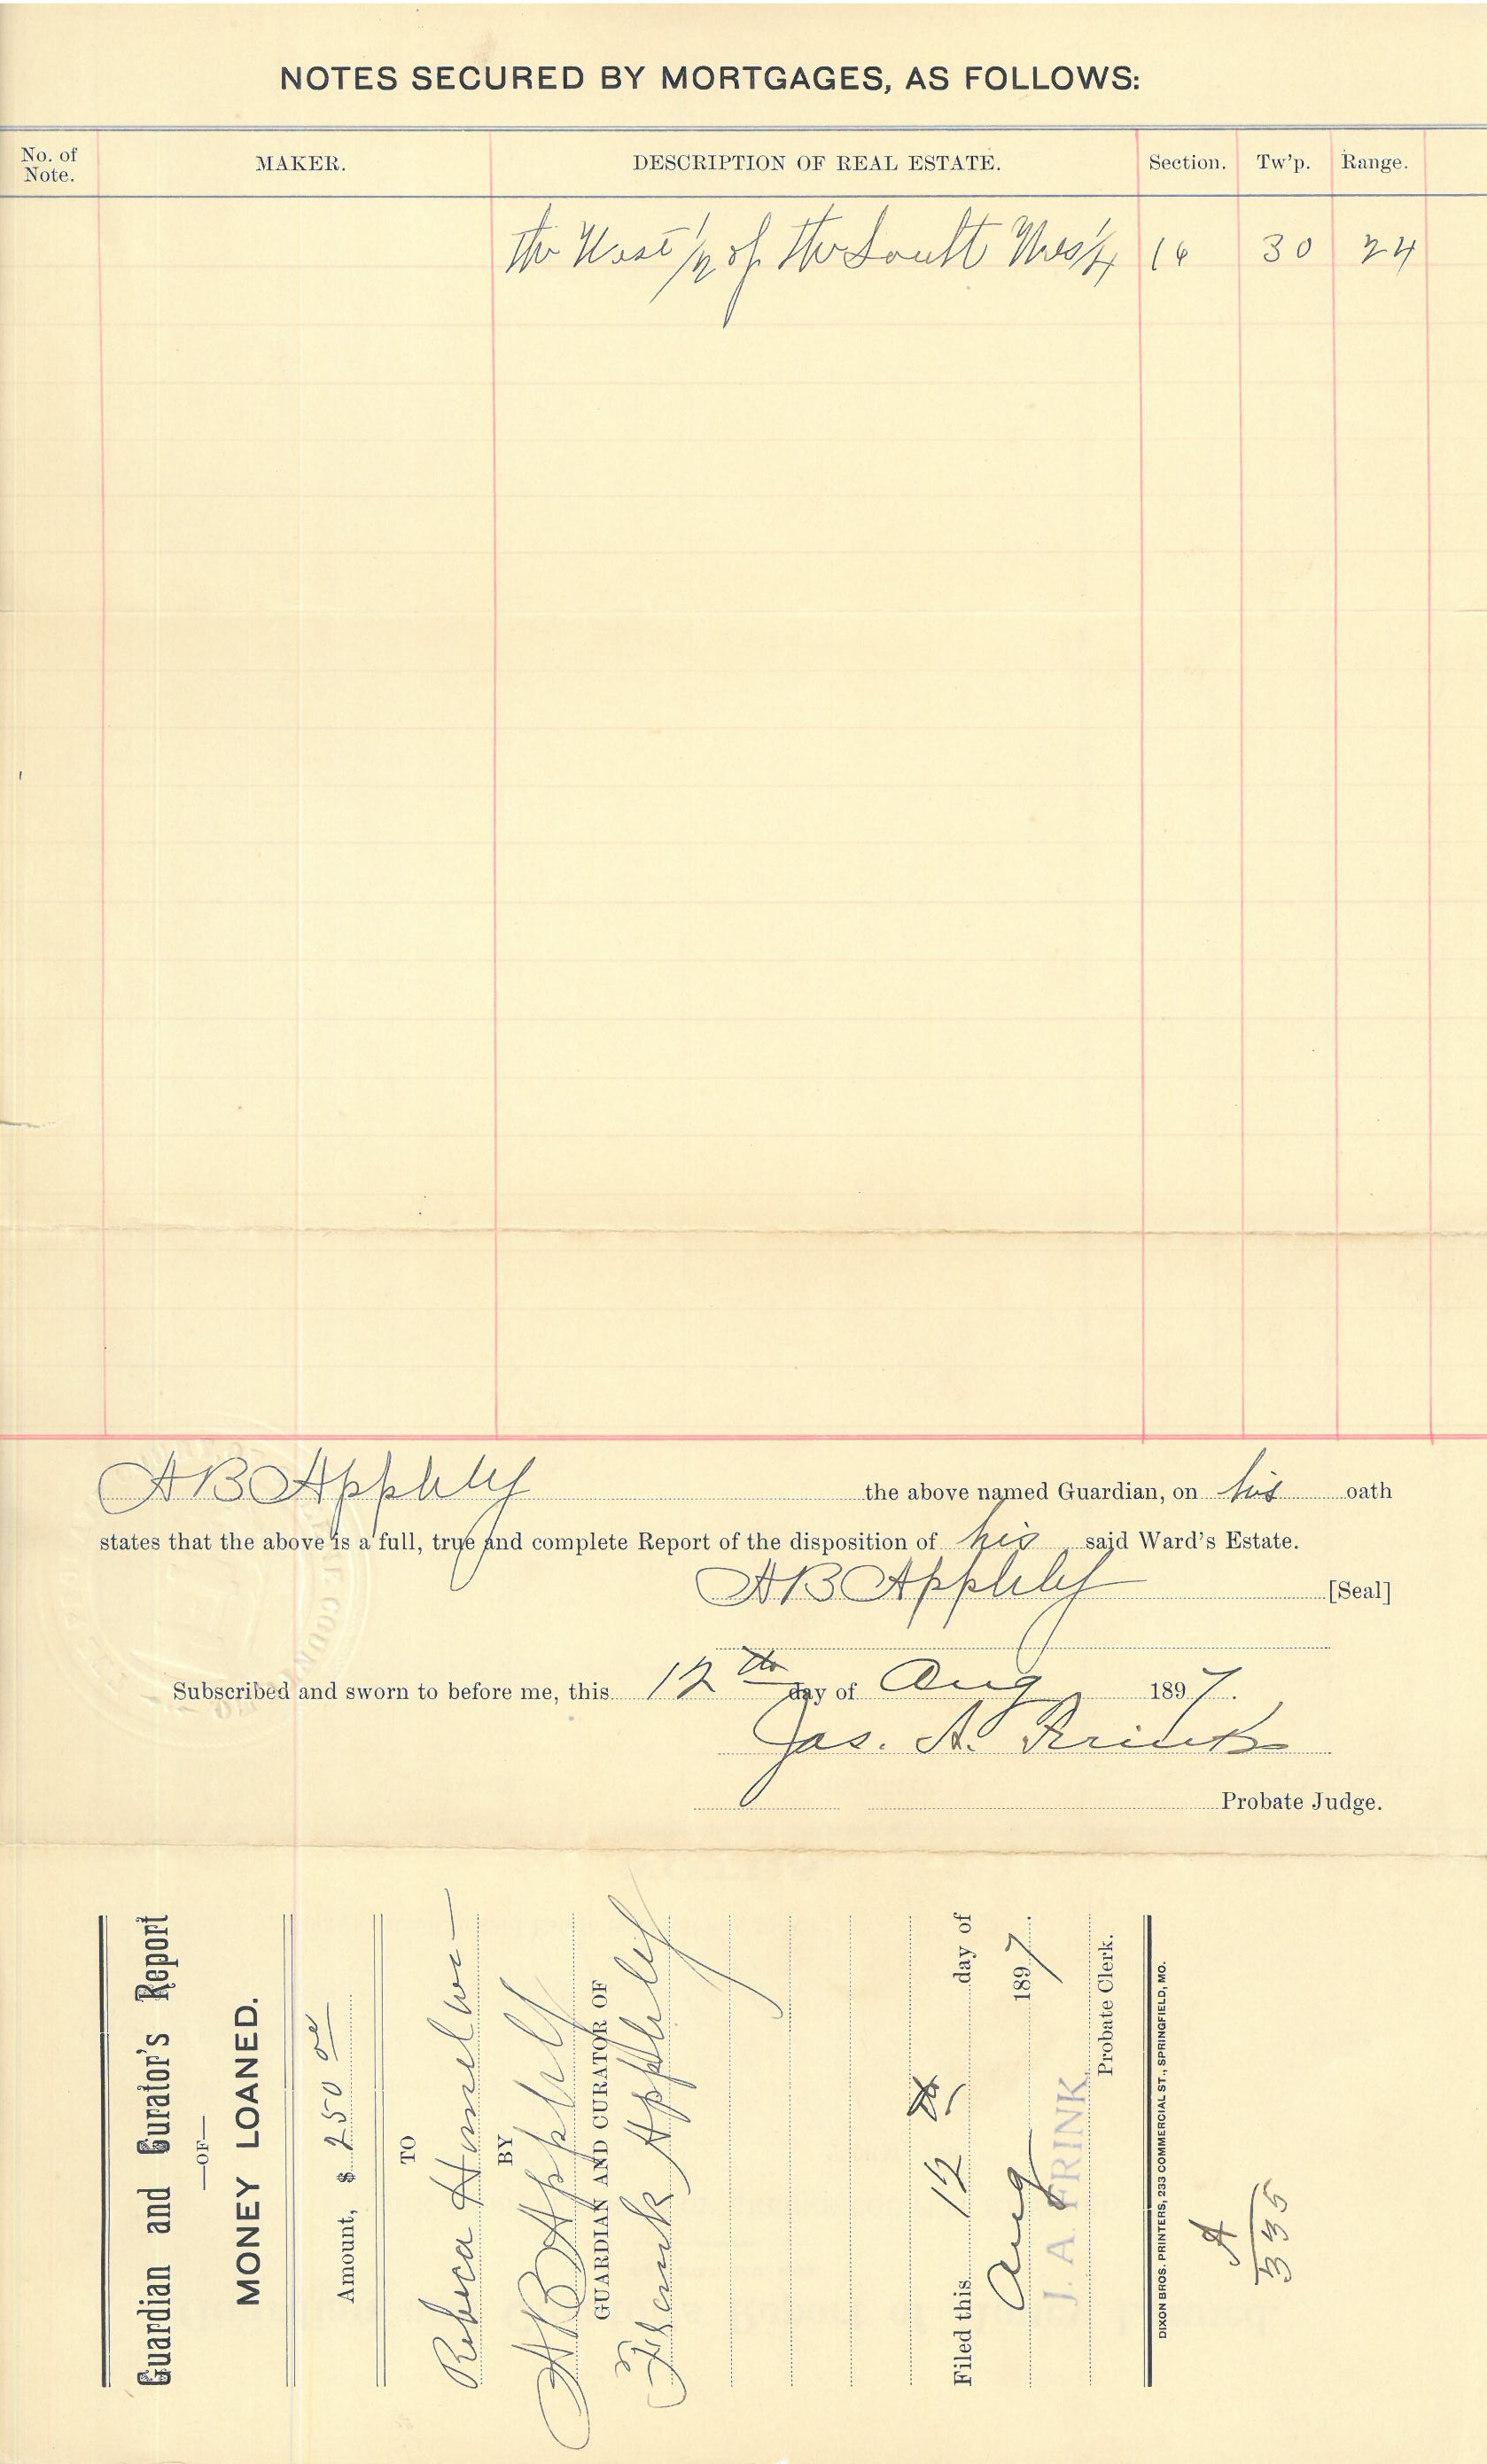 NOTES SECURED BY MORTGAGES, AS FOLLOWS:
No. of Note. MAKER. DESCRIPTION OF REAL ESTATE. Section. Tw'p. Range.
the West 1/2 of the South West 1/4 16 30 24
A B Appleby the above named Guardian, on his oath
states that the above is a full, true and complete Report of the disposition of his said Ward's Estate.
A B Appleby [Seal]
Subscribed and sworn to before me, this 12th day of Aug 1897.
Jas. A. Frink
Probate Judge.
Guardian and Curator's Report
—OF—
MONEY LOANED.
Amount, $ 250 00
TO
Rebeca
BY
A B Appleby
GUARDIAN AND CURATOR OF
Frank Appleby
Filed this 12 day of
Aug 1897.
J. A. FRINK
Probate Clerk.
DIXON BROS. PRINTERS, 233 COMMERCIAL ST., SPRINGFIELD, MO.
A
335